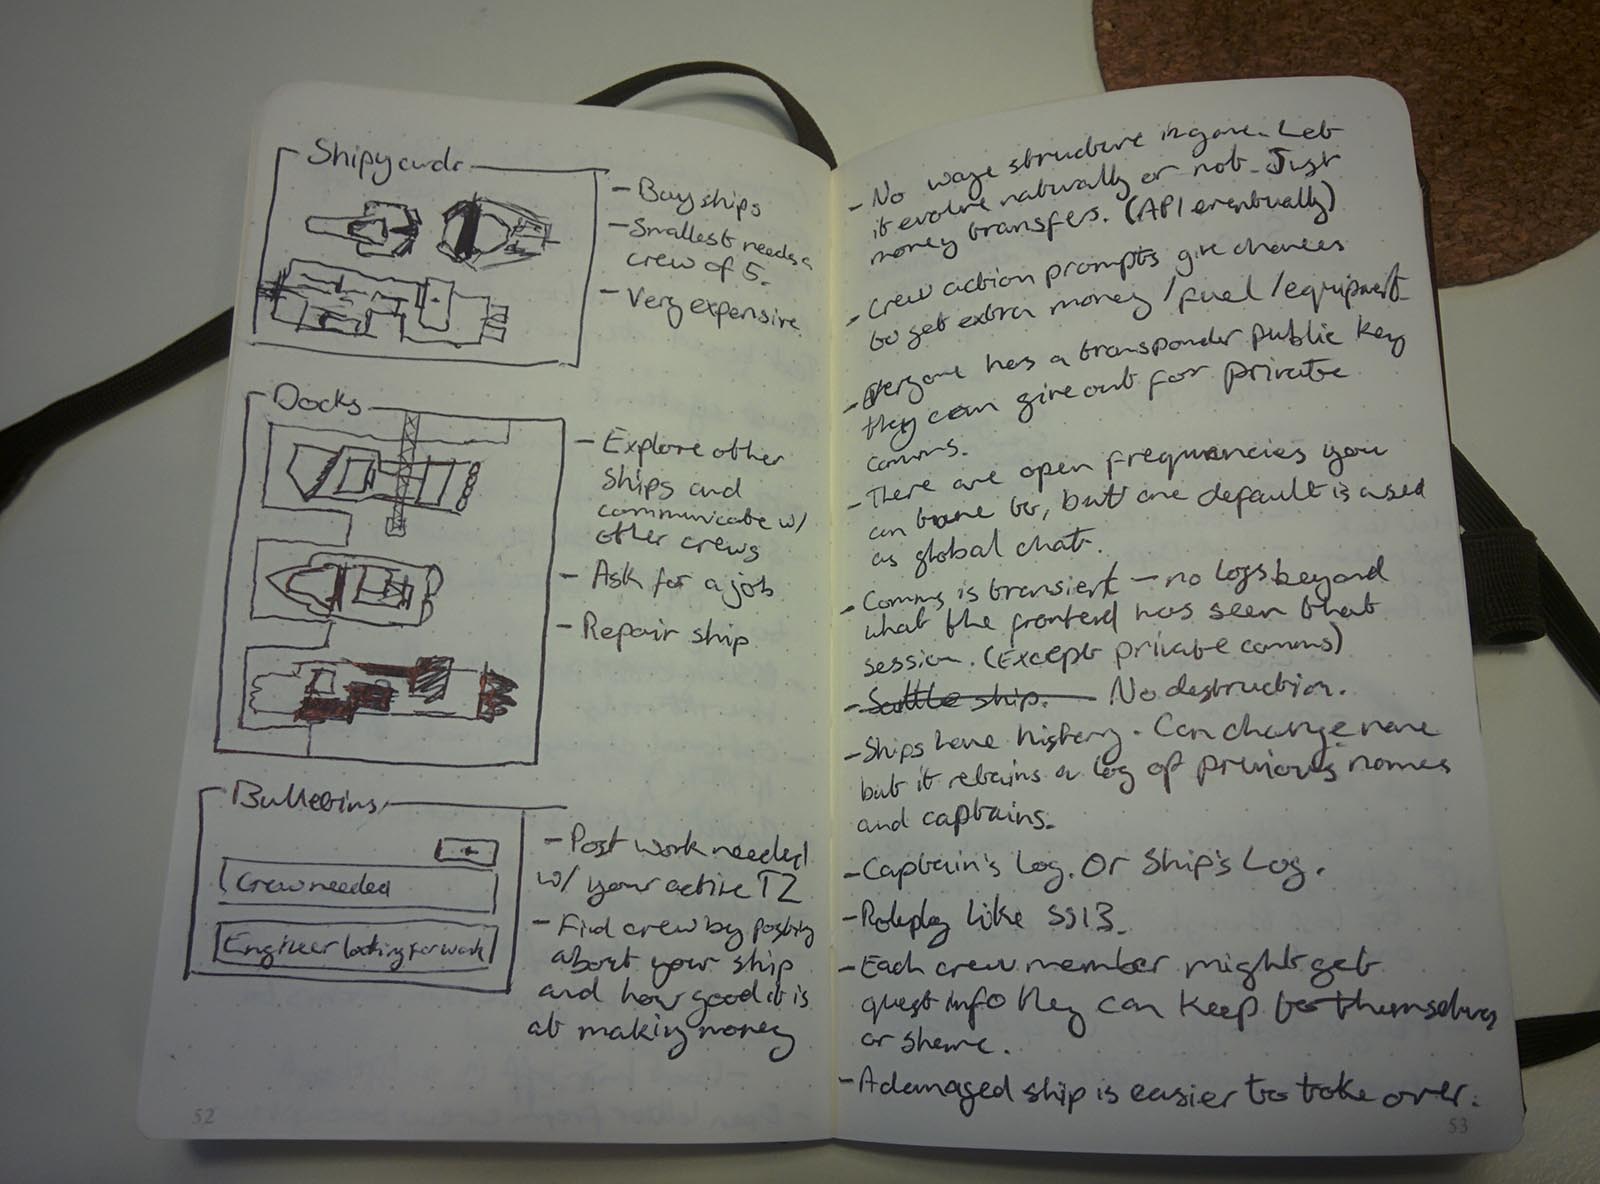 Shipyards
- Buy ships
- Smallest needs a
crew of 5.
- Very expensive
Docks
- Explore other
ships and
communicate w/
other crews
- Ask for a job
- Repair ship
Bulletins
+
Crew needed
Engineer looking for work
- Post work needed
w/ your active TZ
- Find crew by posting
about your ship
and how good it is
at making money
52
- No wage structure ingame. Let
it evolve naturally or not. Just
money transfers. (API eventually)
- Crew action prompts give chances
to get extra money/fuel/equipment
- Everyone has a transponder public key
they can give out for private
comms.
- There are open frequencies you
can tune to, but one default is used
as global chat.
- Comms is transient - no logs beyond
what the frontend has seen that
session. (Except private comms)
- Scuttle ship. No destruction.
- Ships have history. Can change name
but it retains a log of previous names
and captains.
- Captain's Log. Or Ship's Log.
- Roleplay like SS13.
- Each crew member might get
quest info they can keep to themselves
or share.
- A damaged ship is easier to take over.
53